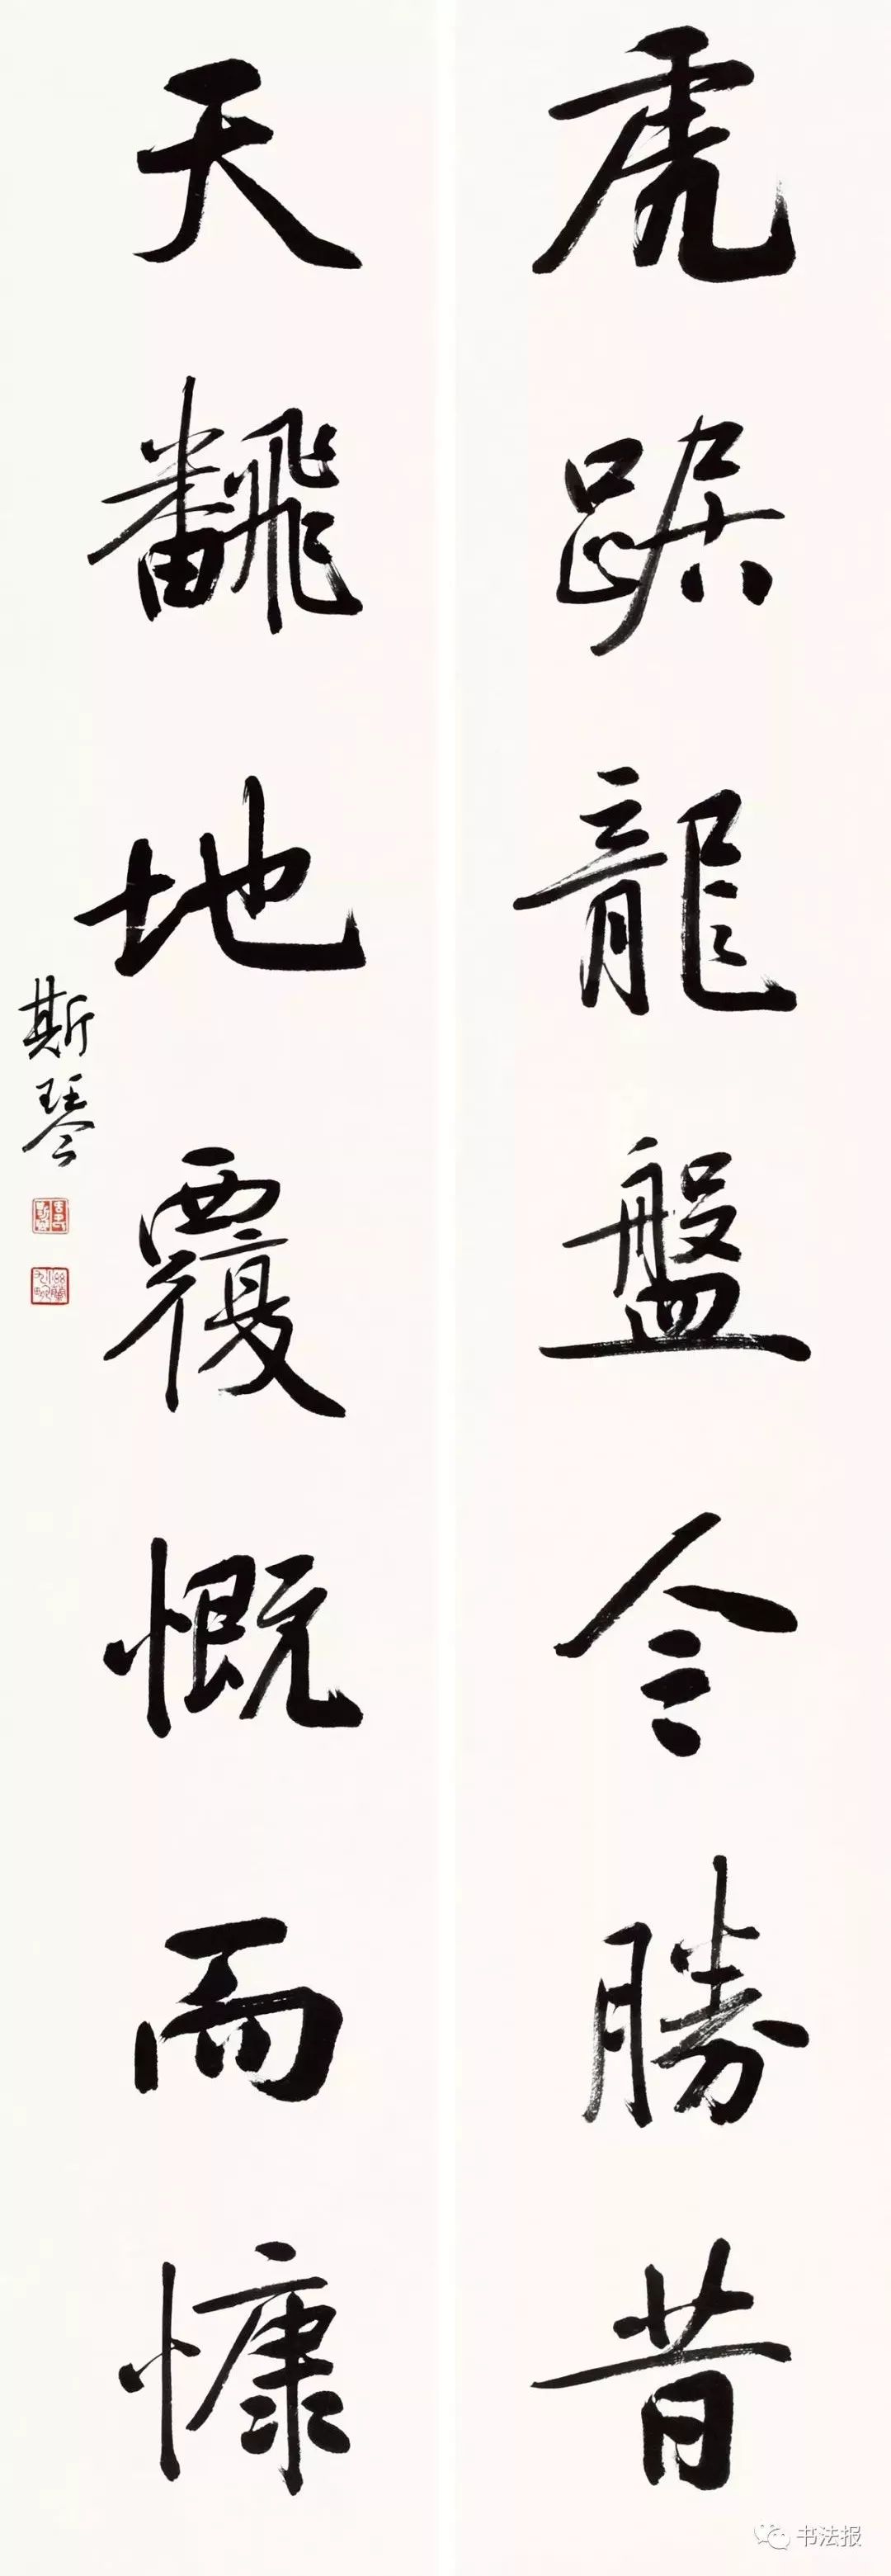 虎踞龍盤今勝昔
天飜地覆慨而慷
斯琴
书法报